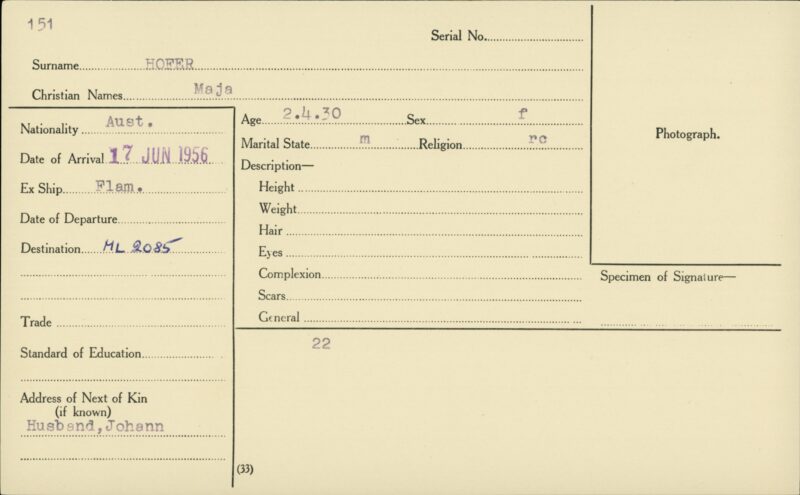 151
Serial No.
Surname HOFER
Christian Names Maja
Nationality Aust.
Date of Arrival 17 JUN 1956
Ex Ship Flam.
Date of Departure
Destination ML 2085
Trade
Standard of Education
Address of Next of Kin
(if known)
Husband,Johann
Age 2.4.30 Sex f
Marital State m Religion rc
Description—
Height
Weight
Hair
Eyes
Complexion
Scars
General
22
(33)
Photograph.
Specimen of Signature—